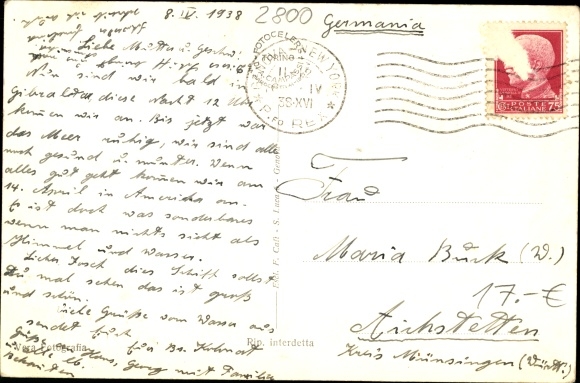 8. IV. 1938
2800
Germania
Liebe Mutter u. Geschw.
Nun sind wir bald in
Gibraltar, diese Nacht 12 Uhr
kommen wir an. Bis jetzt war
das Meer ruhig, wir sind alle
noch gesund u. munter. Wenn
alles gut geht kommen wir am
14. April in Amerika an.
Es ist doch was sonderbares
wenn man nichts sieht als
Himmel und Wasser.
Lieber Josef dies Schiff sollst
Du mal sehen das ist groß
und schön.
Liebe Grüße vom Wasser aus
sendet Euch
Hans, Georg mit Familie
Vera Fotografia
Rip. interdetta
NEW YORK
TORINO
38-XVI
POSTE ITALIANE
75
Frau
Maria Buck (W.)
17.- €
Aichstetten
Kreis Münsingen (Württ.)